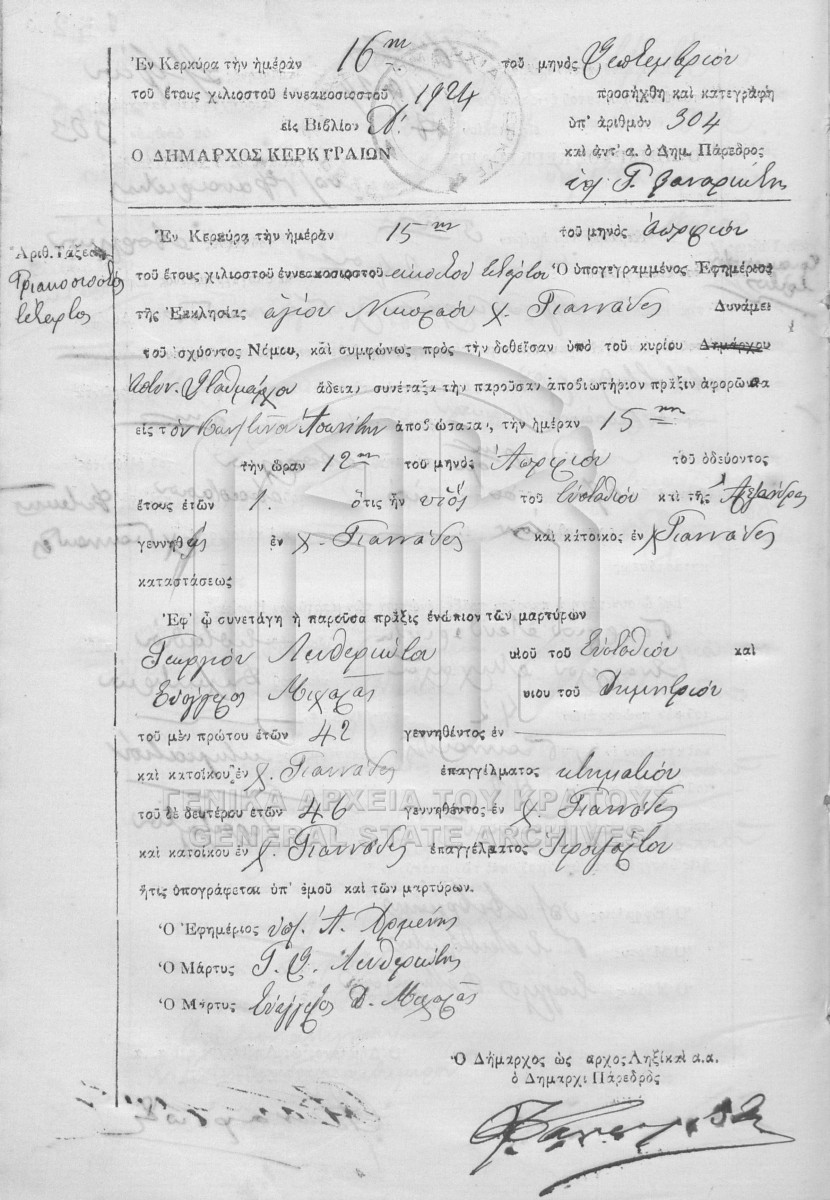 Ἐν Κερκύρᾳ τὴν ἡμέραν 16ην τοῦ μηνὸς Σεπτεμβρίου
τοῦ ἔτους χιλιοστοῦ ἐννεακοσιοστοῦ 1924 προσήχθη καὶ κατεγράφη
εἰς Βιβλίον Δ! ὑπ' ἀριθμὸν 304
Ο ΔΗΜΑΡΧΟΣ ΚΕΡΚΥΡΑΙΩΝ καὶ ἀντ' α. ὁ Δημ. Πάρεδρος
ὑπ. Γ.
Ἀριθ. Τάξεως
Τριακοσιοστὸς
τέταρτος
Ἐν Κερκύρᾳ τὴν ἡμέραν 15ην τοῦ μηνὸς Ἀπριλίου
τοῦ ἔτους χιλιοστοῦ ἐννεακοσιοστοῦ εἰκοστοῦ τετάρτου Ὁ ὑπογεγραμμένος Ἐφημέριος
τῆς Ἐκκλησίας ἁγίου Νικολάου χ. Γιαννάδες Δυνάμει
τοῦ ἰσχύοντος Νόμου, καὶ συμφώνως πρὸς τὴν δοθεῖσαν ὑπὸ τοῦ κυρίου Δημάρχου
Ἀστυν. Σταθμάρχου ἄδειαν, συνέταξα τὴν παροῦσαν ἀποβιωτήριον πρᾶξιν ἀφορῶσα
εἰς τὸν ἀποβιώσαντα, τὴν ἡμέραν 15ην
τὴν ὥραν 12ην τοῦ μηνὸς Ἀπριλίου τοῦ ὁδεύοντος
ἔτους ἐτῶν 1. ὅτις ἦν υἱὸς τοῦ Εὐσταθίου καὶ τῆς Ἀλεξάνδρας
γεννηθεὶς ἐν χ. Γιαννάδες καὶ κάτοικος ἐν χ Γιαννάδες
καταστάσεως
Ἐφ' ᾧ συνετάγη ἡ παροῦσα πρᾶξις ἐνώπιον τῶν μαρτύρων
Γεωργίου Λευθεριώτου υἱοῦ τοῦ Εὐσταθίου καὶ
Εὐάγγελος Μιχαλᾶς υἱοῦ τοῦ Δημητρίου
τοῦ μὲν πρώτου ἐτῶν 42 γεννηθέντος ἐν
καὶ κατοίκου ἐν χ. Γιαννάδες ἐπαγγέλματος κτηματίου
τοῦ δὲ δευτέρου ἐτῶν 46 γεννηθέντος ἐν χ. Γιαννάδες
καὶ κατοίκου ἐν χ. Γιαννάδες ἐπαγγέλματος
ἥτις ὑπογράφεται ὑπ' ἐμοῦ καὶ τῶν μαρτύρων.
Ὁ Ἐφημέριος ὑπ. Α. Ἀρμένης
Ὁ Μάρτυς Γ. Ε. Λευθεριώτης
Ὁ Μάρτυς Εὐάγγελος Δ. Μιχαλᾶς
Ὁ Δήμαρχος ὡς αρχος Ληξικαὶ α.α.
ὁ Δημαρχι Πάρεδρος
ΓΕΝΙΚΑ ΑΡΧΕΙΑ ΤΟΥ ΚΡΑΤΟΥΣ
GENERAL STATE ARCHIVES